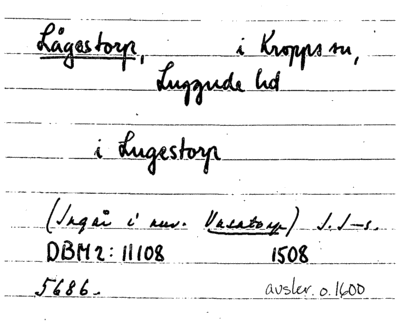 Lågestorp, i Kropps sn,
Luggude hd
i Lugestorp
(Ingår i nuv. Vasatorp) J.J-s.
DBM 2: 11108 1508
5686. avskr. o. 1600